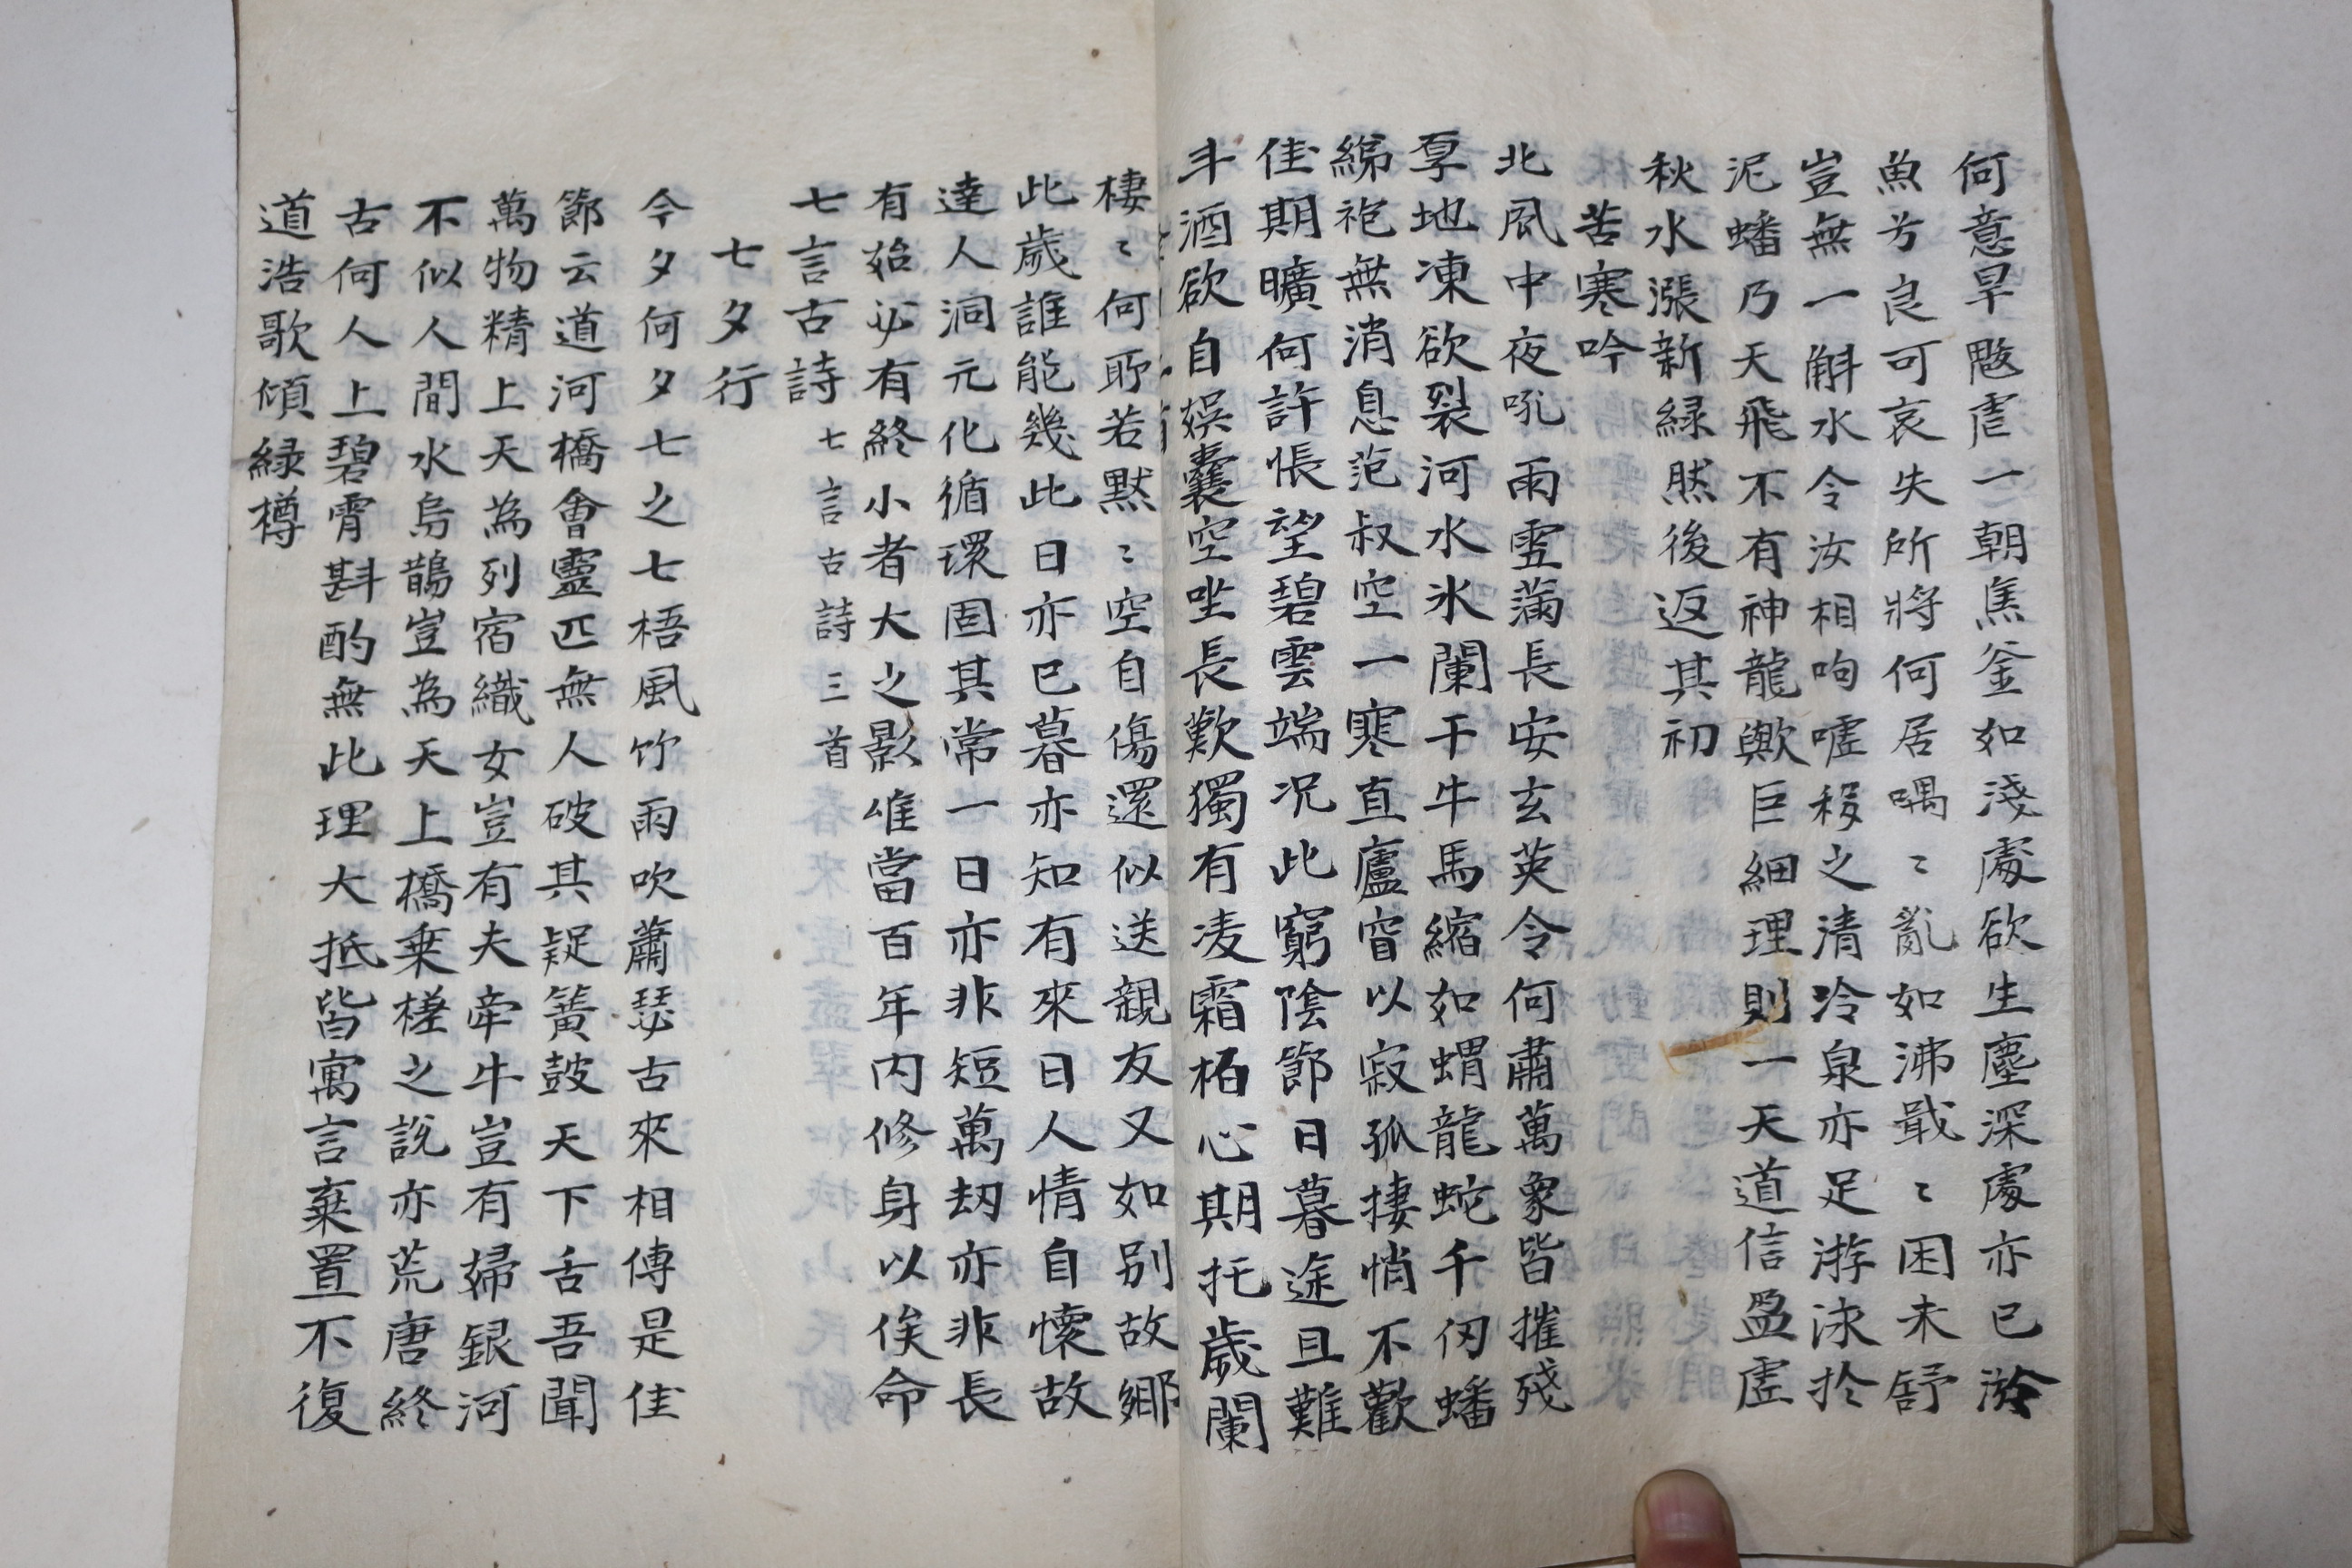 何意旱魃虐一朝焦釜如淺處欲生塵深處亦已渝
魚兮良可哀失所將何居喁〻亂如沸戢〻困未舒
豈無一斛水令汝相呴噓移之清冷泉亦足游泳於
泥蟠乃天飛不有神龍歟巨細理則一天道信盈虛
秋水漲新綠然後返其初
苦寒吟
北風中夜吼雨雪滿長安玄英令何肅萬象皆摧殘
厚地凍欲裂河水氷闌干牛馬縮如蝟龍蛇千仞蟠
綈袍無消息范叔空一寒直廬窅以寂孤捿悄不歡
佳期曠何許悵望碧雲端況此窮陰節日暮途且難
斗酒欲自娛囊空坐長歎獨有凌霜栢心期托歲闌
棲〻何所若默〻空自傷還似送親友又如別故鄉
此歲誰能幾此日亦已暮亦知有來日人情自懷故
達人洞元化循環固其常一日亦非短萬劫亦非長
有始必有終小者大之影唯當百年內修身以俟命
七言古詩 七言古詩三首
七夕行
今夕何夕七之七梧風竹雨吹蕭瑟古來相傳是佳
節云道河橋會靈匹無人破其疑簧鼓天下舌吾聞
萬物精上天為列宿織女豈有夫牽牛豈有婦銀河
不似人間水烏鵲豈為天上橋乗槎之說亦荒唐終
古何人上碧霄斟酌無此理大抵皆寓言棄置不復
道浩歌傾綠樽